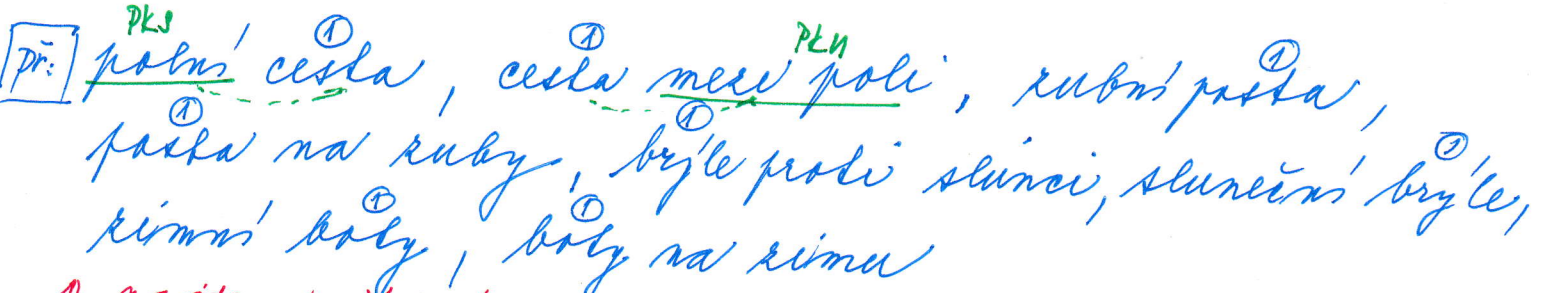 PKS ① ① PKN ①
př: polní cesta, cesta mezi poli, zubní pasta,
① ① ①
pasta na zuby, brýle proti slunci, sluneční brýle,
① ①
zimní boty, boty na zimu